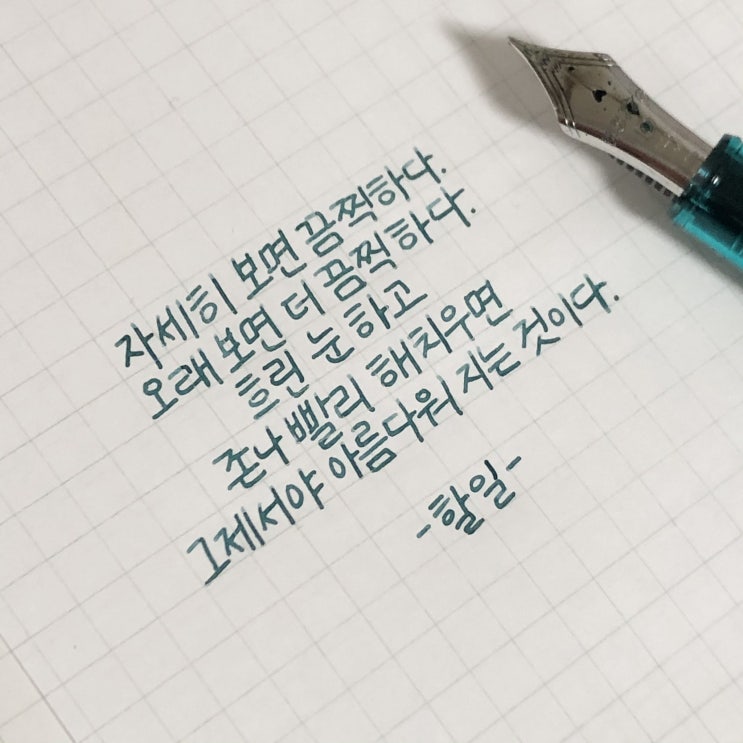 자세히 보면 끔찍하다.
오래 보면 더 끔찍하다.
흐린 눈 하고
존나 빨리 해치우면
그제서야 아름다워 지는 것이다.
-할일-